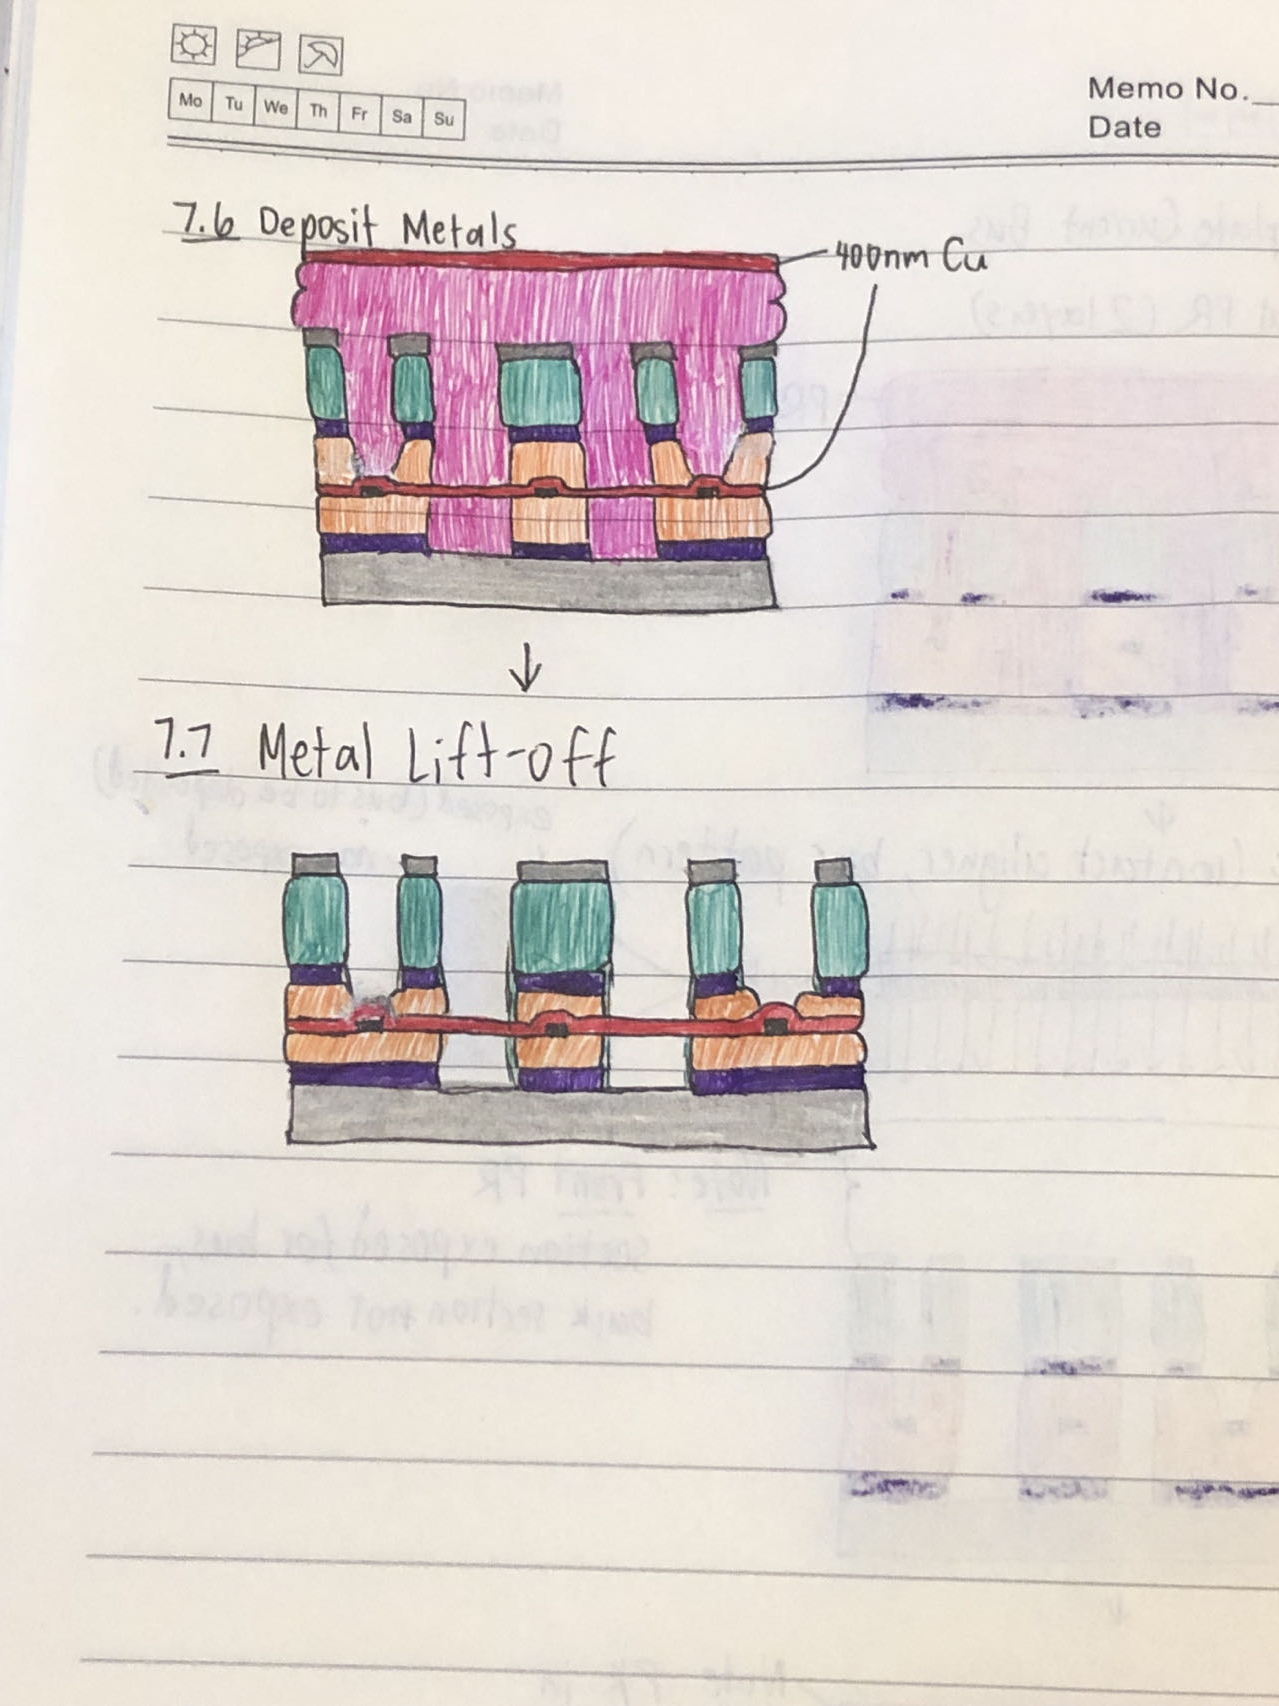 Mo Tu We Th Fr Sa Su
Memo No.
Date
7.6 Deposit Metals
400nm Cu
7.7 Metal Lift-off